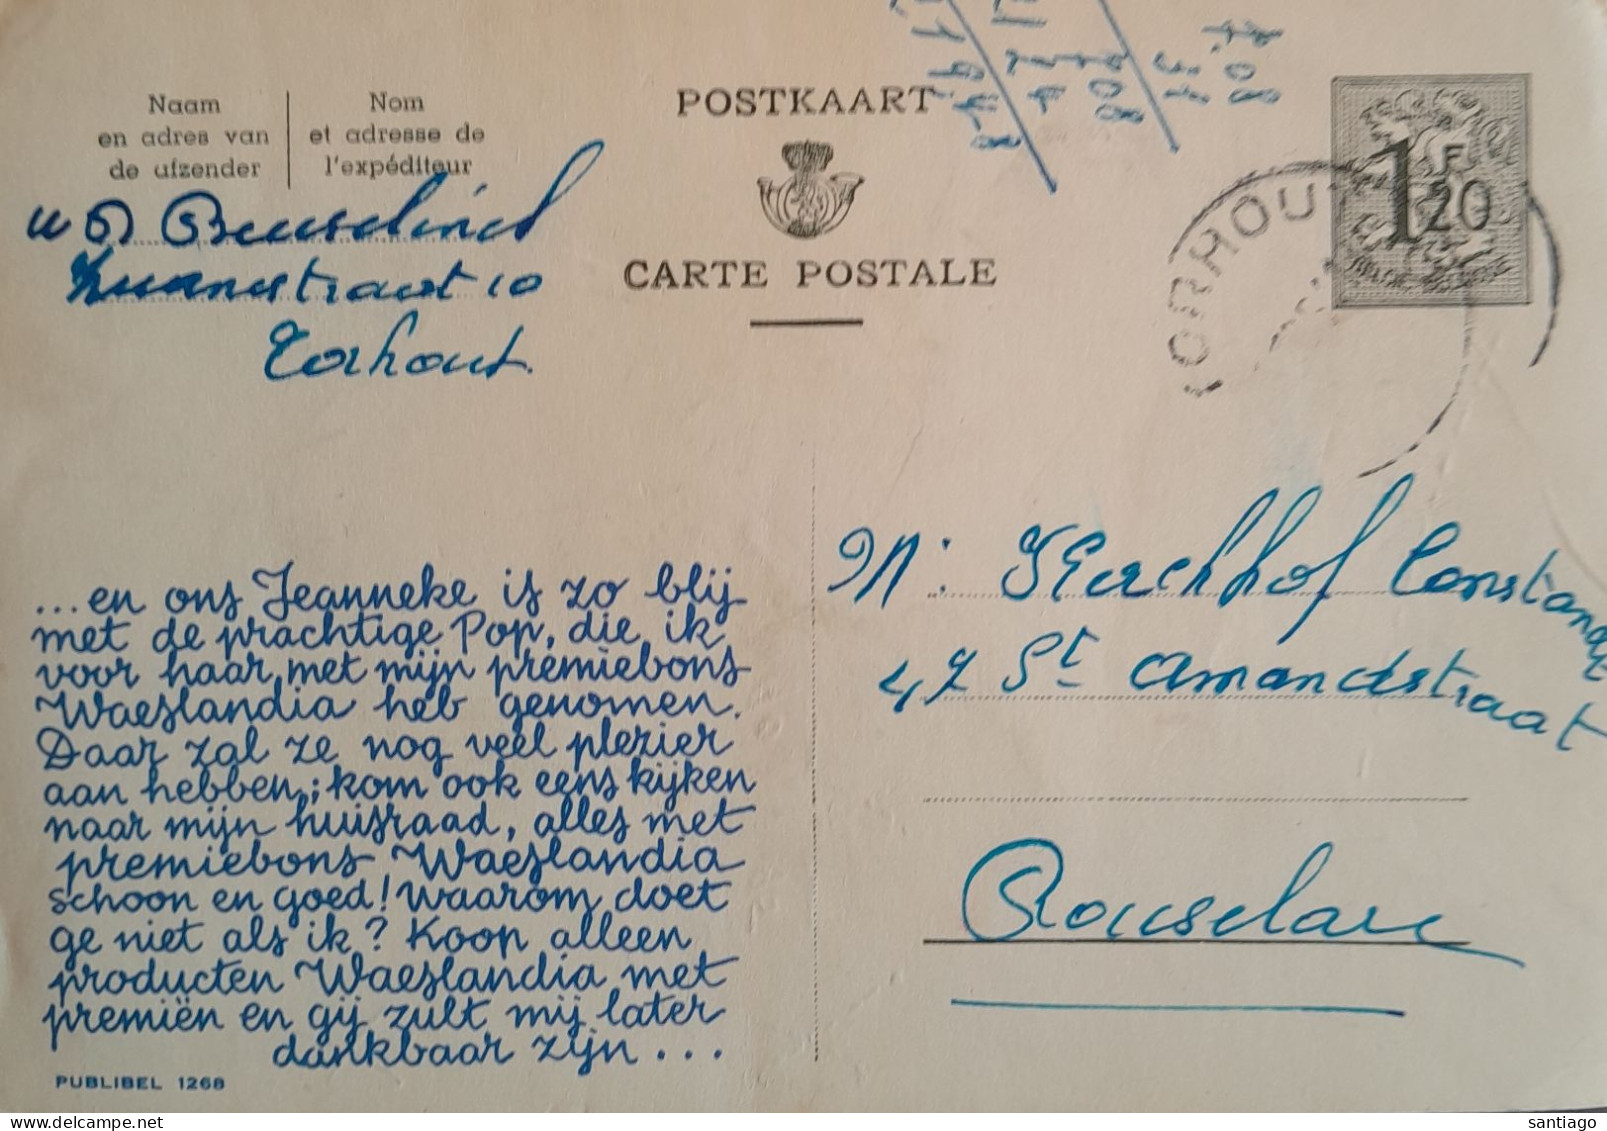 Naam
en adres van
de afzender
Nom
et adresse de
l'expéditeur
POSTKAART
CARTE POSTALE
1F20
TORHOU
10
Torhout.
7.08
31
708
2124
2194.8
M: Kerckhof Constant
47 St Amandstraat
Rouselare
...en ons Jeanneke is zo blij
met de prachtige Pop, die ik
voor haar, met mijn premiebons
Waeslandia heb genomen.
Daar zal ze nog veel plezier
aan hebben; kom ook eens kijken
naar mijn huisraad, alles met
premiebons Waeslandia
schoon en goed! Waarom doet
ge niet als ik? Koop alleen
producten Waeslandia met
premiën en gij zult mij later
dankbaar zijn...
PUBLIBEL 1268
santiago